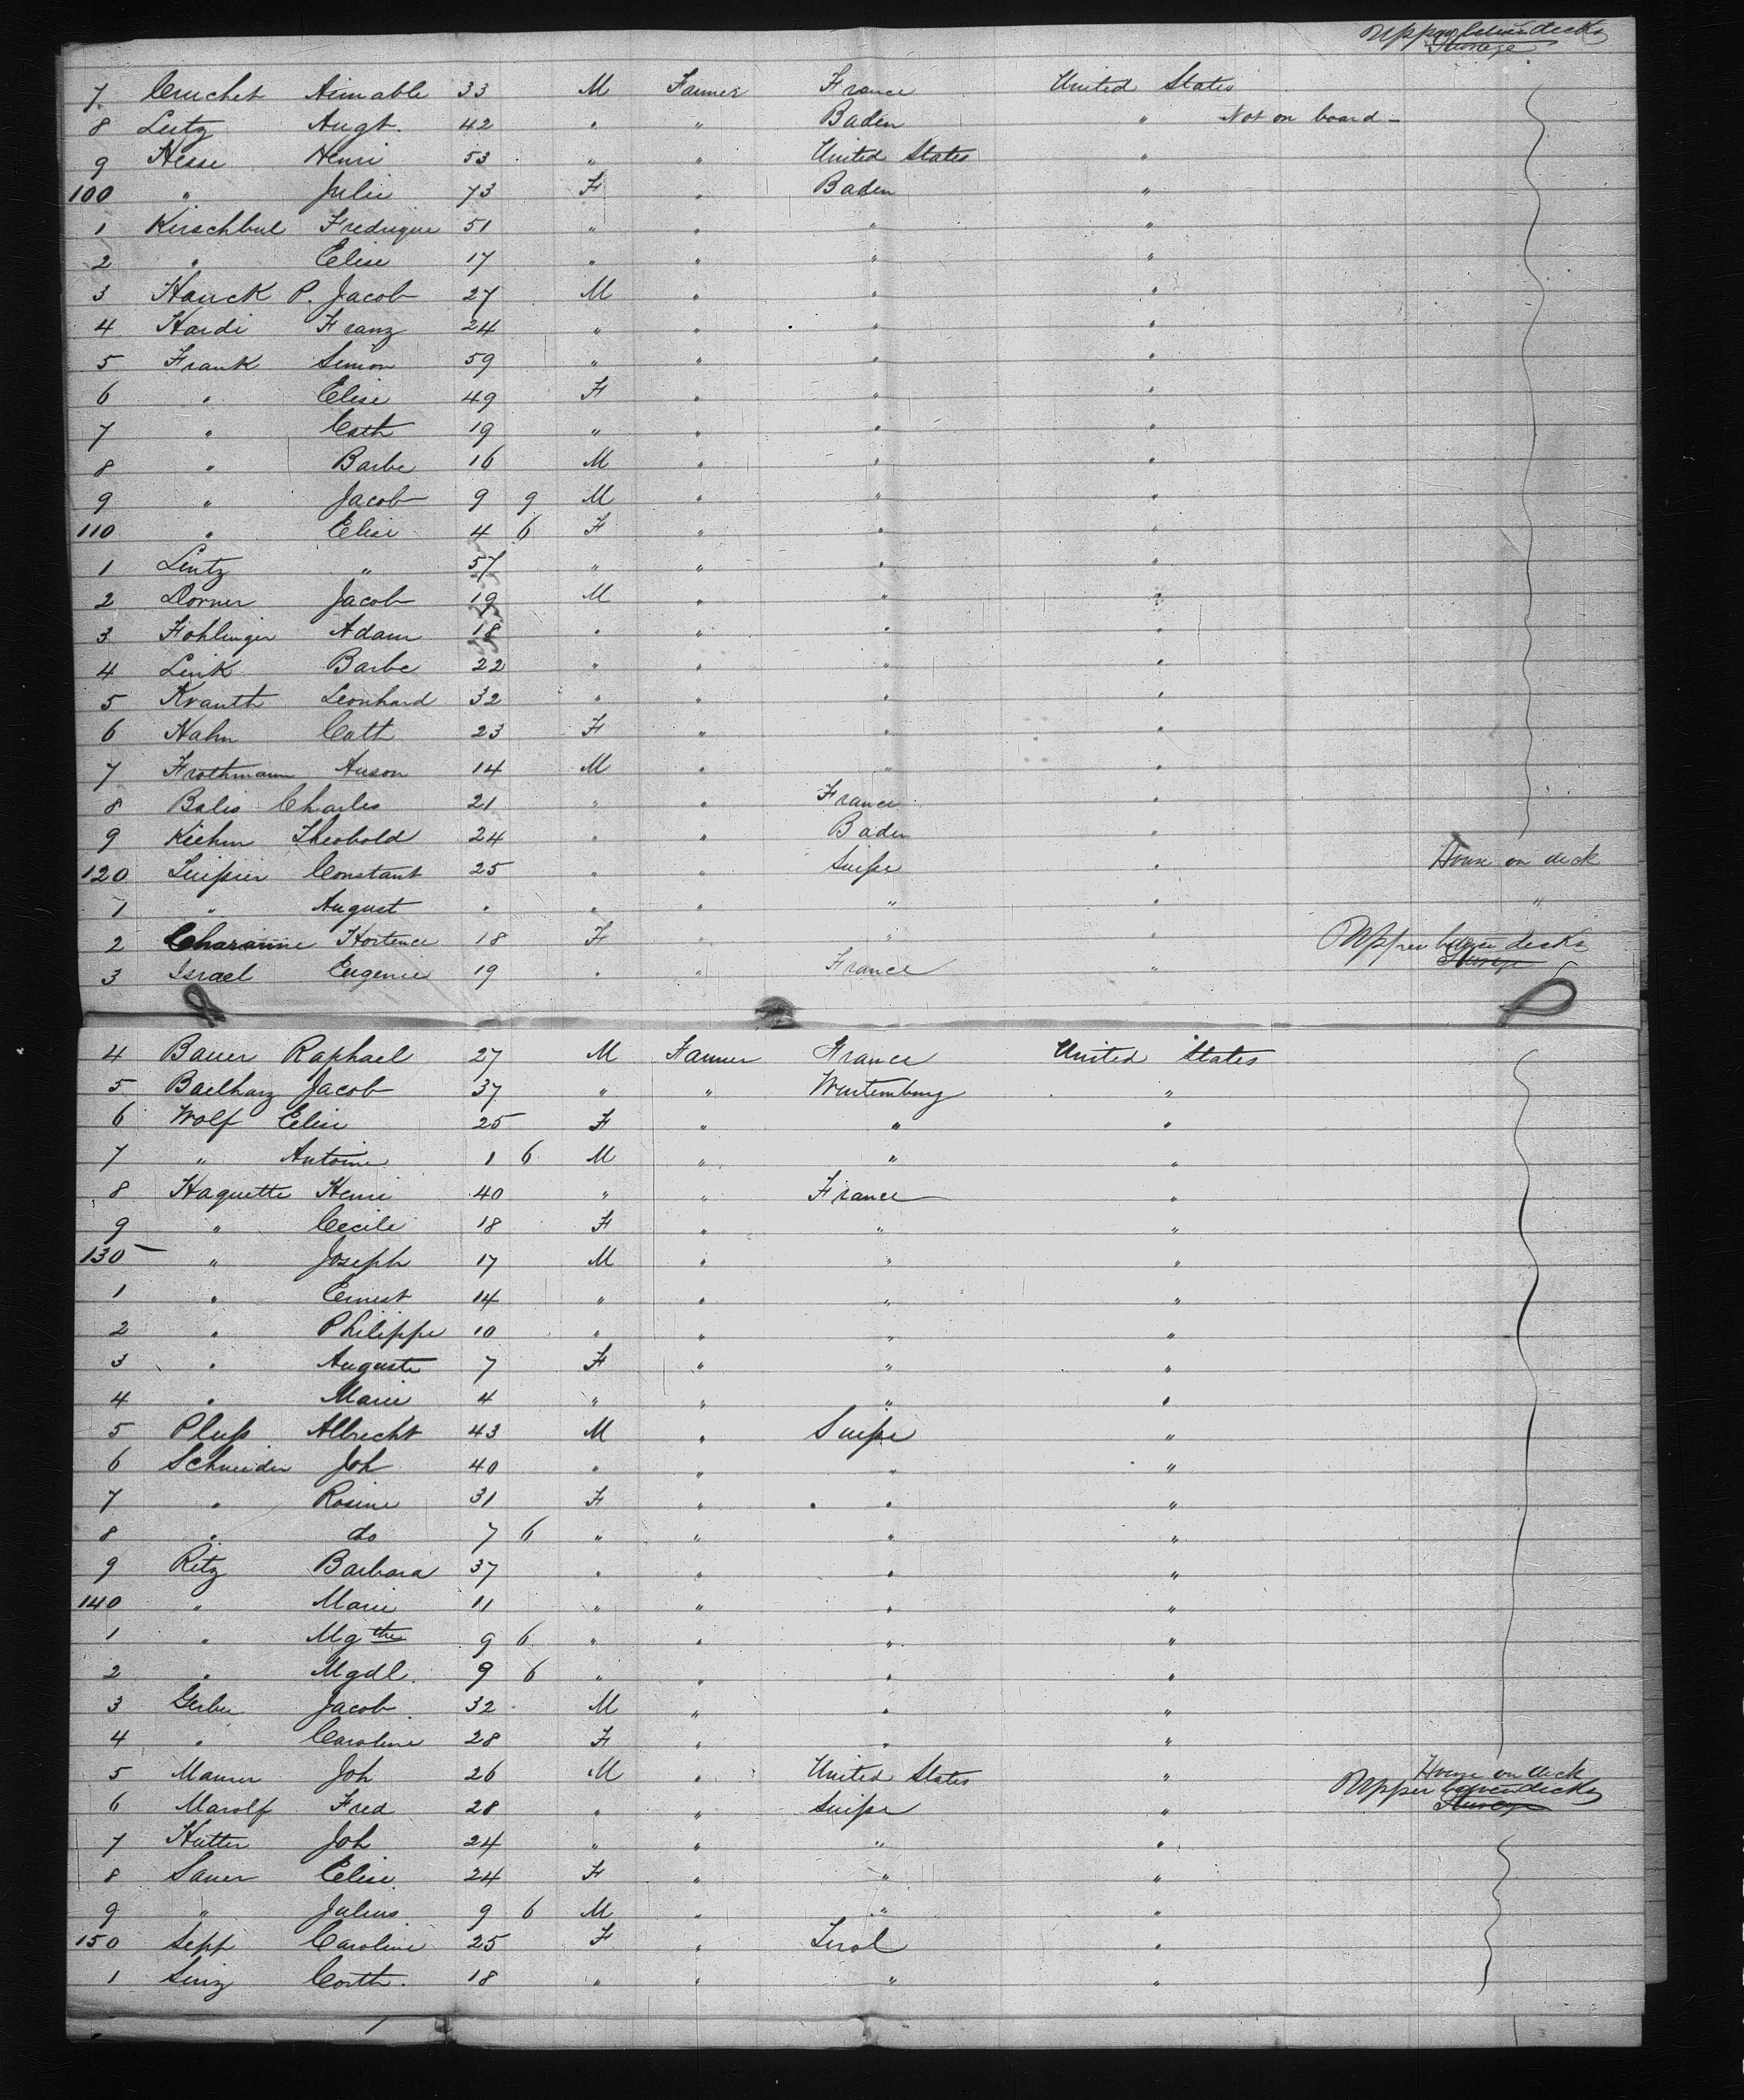 Upper between decks
Steerage
7 Cruchet Aimable 33 M Farmer France United States
8 Lutz Augt. 42 " " Baden " Not on board -
9 Hesse Henri 53 " " United States "
100 " Julie 73 F " Baden "
1 Kirschbul Fredrique 51 " " " "
2 " Elise 17 " " " "
3 Hauck P. Jacob 27 M " " "
4 Hardi Franz 24 " " " "
5 Frank Simon 59 " " " "
6 " Elise 49 F " " "
7 " Cath 19 " " " "
8 " Barbe 16 M " " "
9 " Jacob 9 9 M " " "
110 " Elise 4 6 F " " "
1 Lintz " 57 " " " "
2 Dorner Jacob 19 M " " "
3 Fohlinger Adam 18 " " " "
4 Link Barbe 22 " " " "
5 Krauth Leonhard 32 " " " "
6 Hahn Cath 23 F " " "
7 Frothmann Anson 14 M " " "
8 Balis Charles 21 " " France "
9 Kiehm Theobold 24 " " Baden "
120 Constant 25 " " Suisse " House on deck
1 " August " " " " " "
2 Charanne Hortence 18 F " " " Upper between decks
Steerage
3 Israel Eugenie 19 " " France "
4 Bauer Raphael 27 M Farmer France United States
5 Baelharz Jacob 37 " " Wurtemburg "
6 Wolf Elise 25 F " " "
7 " Antoine 1 6 M " " "
8 Haquette Henri 40 " " France "
9 " Cecile 18 F " " "
130 " Joseph 17 M " " "
1 " Ernest 14 " " " "
2 " Philippe 10 " " " "
3 " Auguste 7 F " " "
4 " Marie 4 " " " "
5 Pluss Albrecht 43 M " Suisse "
6 Schneider Joh 40 " " " "
7 " Rosine 31 F " " "
8 " do 7 6 " " " "
9 Ritz Barbara 37 " " " "
140 " Marie 11 " " " "
1 " Mgthe 9 6 " " " "
2 " Mgdl. 9 6 " " " "
3 Gerber Jacob 32 M " " "
4 " Caroline 28 F " " "
5 Maurer Joh 26 M " United States " House on deck
6 Marolf Fred 28 " " Suisse " Upper between decks
Steerage
7 Hutter Joh 24 " " " "
8 Sauer Elise 24 F " " "
9 " Julius 9 6 M " " "
150 Sepp Caroline 25 F " Tirol "
1 Sinz Cath. 18 " " " "